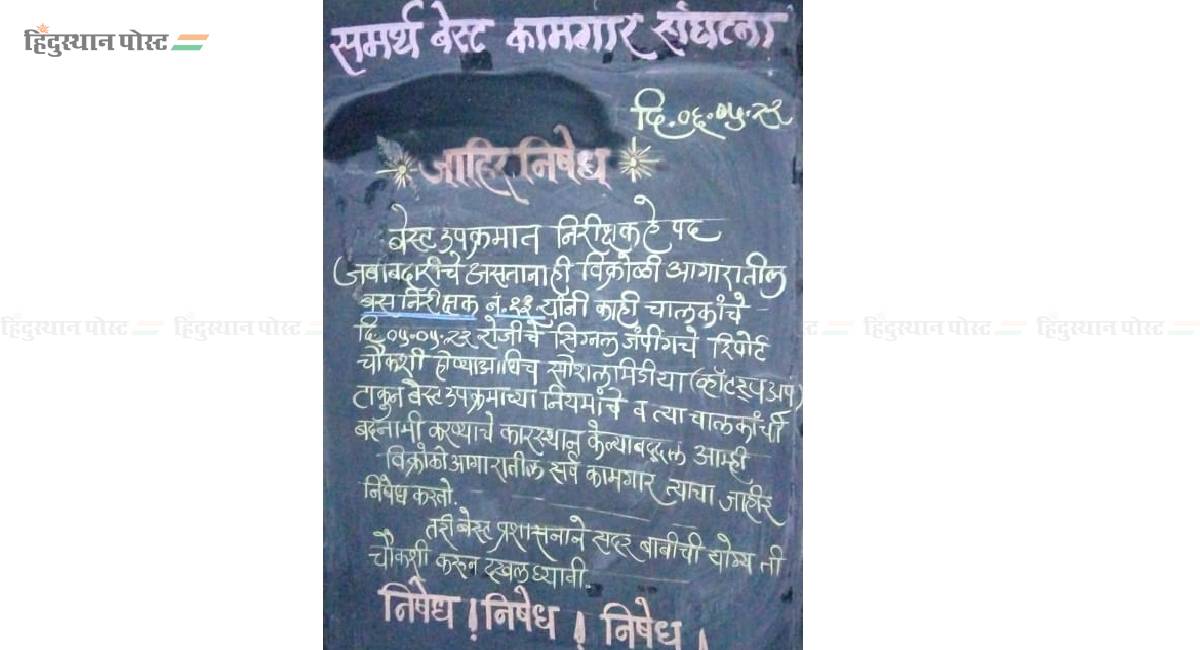 हिंदुस्थान पोस्ट
समर्थ बेस्ट कामगार संघटना
दि.०६.०५.२३
जाहिर निषेध
बेस्ट उपक्रमात निरीक्षक हे पद
जबाबदारीचे असतानाही विक्रोळी आगारातील
बस निरीक्षक नं. १३ यांनी काही चालकांचे
दि.०५.०५.२३ रोजीचे सिग्नल जंपींगचे रिपोर्ट
चौकशी होण्याआधिच सोशल मिडीया (व्हॉटस्प अप)
टाकुन बेस्ट उपक्रमाच्या नियमांचे व त्या चालकांची
बदनामी करण्याचे कारस्थान केल्याबद्दल आम्ही
विक्रोळी आगारातील सर्व कामगार त्याचा जाहीर
निषेध करतो.
तरी बेस्ट प्रशासनाने सदर बाबीची योग्य ती
चौकशी करून दखल घ्यावी.
निषेध ! निषेध ! निषेध !
हिंदुस्थान पोस्ट हिंदुस्थान पोस्ट हिंदुस्थान पोस्ट हिंदुस्थान पोस्ट हिंदुस्थान पोस्ट